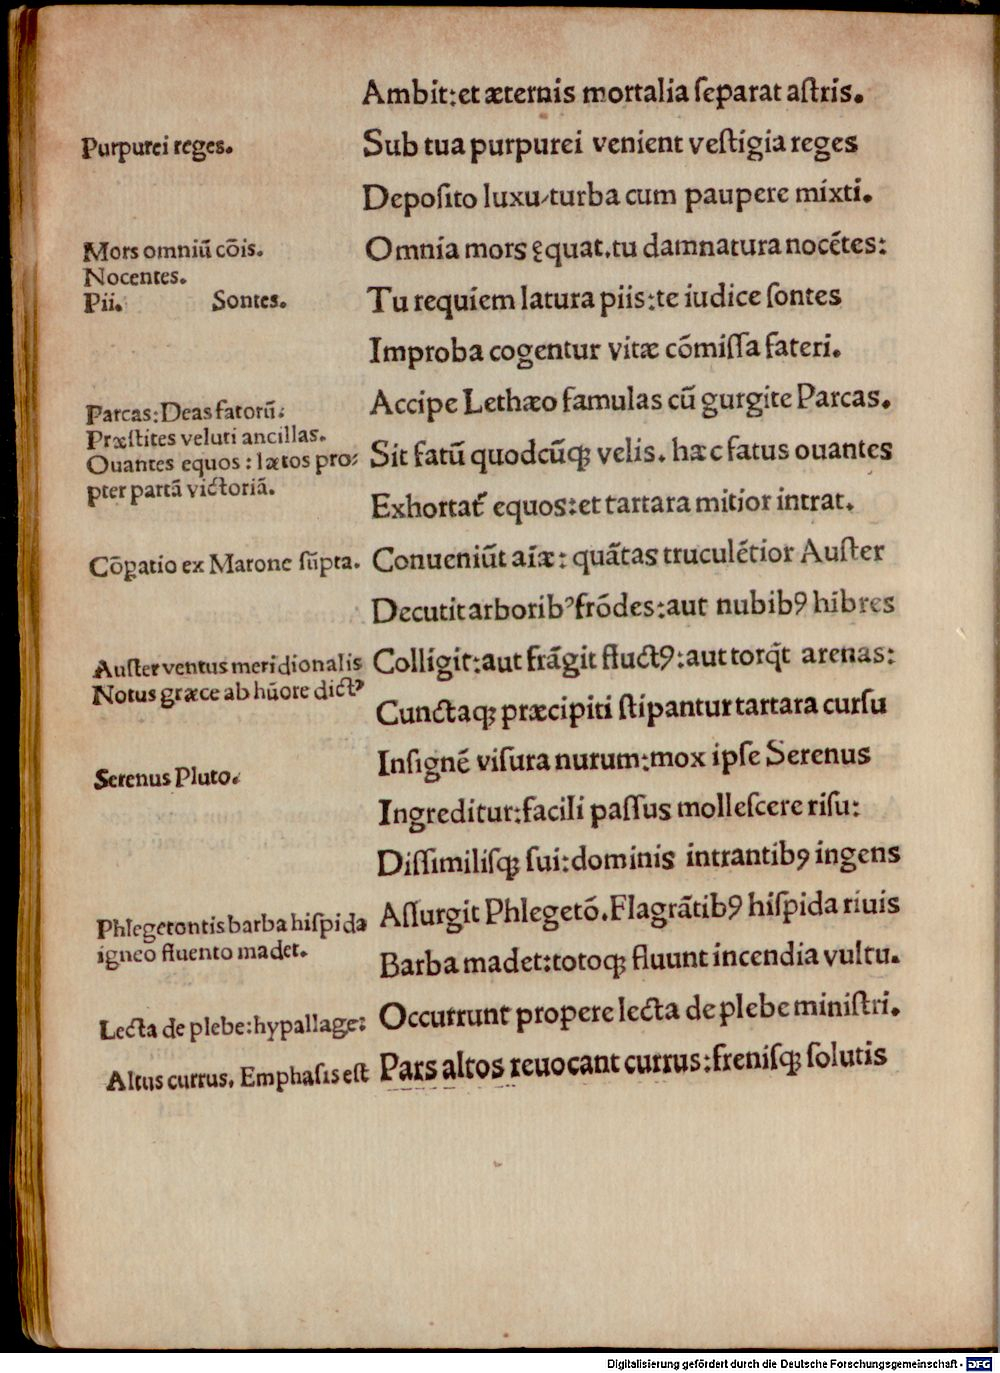 Ambit:et æternis mortalia ſeparat aſtris.
Purpurei reges.
Sub tua purpurei venient veſtigia reges
Depoſito luxu/turba cum paupere mixti.
Mors omniũ cõis.
Omnia mors ęquat.tu damnatura nocẽtes:
Nocentes.
Pii. Sontes.
Tu requiem latura piis:te iudice ſontes
Improba cogentur vitæ cõmiſſa fateri.
Parcas:Deas fatorũ:
Accipe Lethæo famulas cũ gurgite Parcas.
Præſtites veluti ancillas.
Ouantes equos : lætos pro:
Sit fatũ quodcũqꝫ velis. hæc fatus ouantes
pter partã victoriã.
Exhortat᷑ equos:et tartara mitior intrat.
Cõꝑatio ex Marone ſũpta.
Conueniũt aĩæ: quãtas truculẽtior Auſter
Decutit arboribꝰ frõdes:aut nubibꝰ hibres
Auſter ventus meridionalis
Colligit:aut frãgit fluctꝰ:aut torq̃t arenas:
Notus græce ab hũore dictꝰ
Cunctaqꝫ præcipiti ſtipantur tartara curſu
Inſignẽ viſura nurum:mox ipſe Serenus
Serenus Pluto.
Ingreditur:facili paſſus molleſcere riſu:
Diſſimiliſqꝫ ſui:dominis intrantibꝰ ingens
Phlegetontis barba hiſpida
Aſſurgit Phlegetõ.Flagrãtibꝰ hiſpida riuis
igneo fluento madet.
Barba madet:totoqꝫ fluunt incendia vultu.
Lecta de plebe:hypallage:
Occurrunt propere lecta de plebe miniſtri.
Altus currus. Emphaſis eſt
Pars altos reuocant currus:freniſqꝫ ſolutis
Digitalisierung gefördert durch die Deutsche Forschungsgemeinschaft - DFG